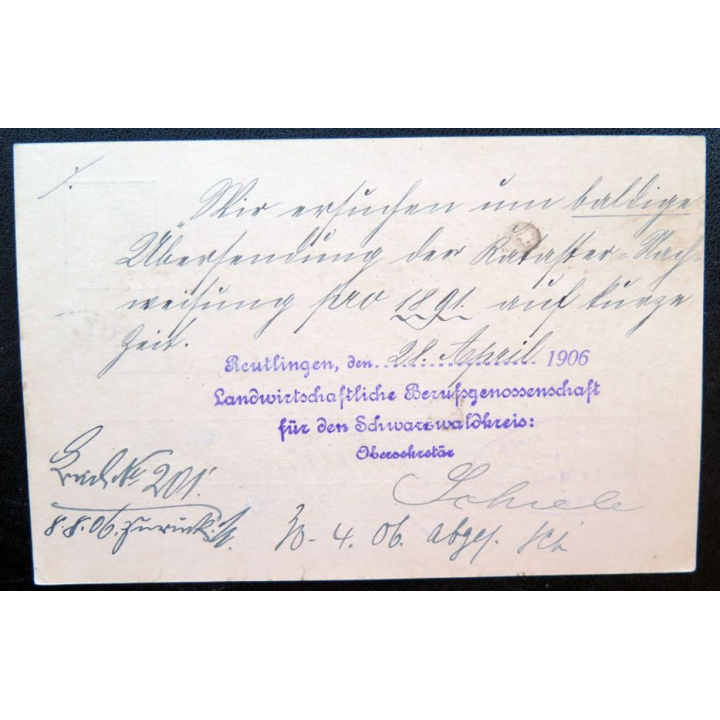 Wir ersuchen um baldige
Übersendung der Kataster-Nach-
weisung pro 1891. auf kurze
Zeit.
Reutlingen, den 28. April 1906
Landwirtschaftliche Berufsgenossenschaft
für den Schwarzwaldkreis:
Obersekretär
Schiele
No 201.
8.8.06. zurück.
30-4.06. abges.